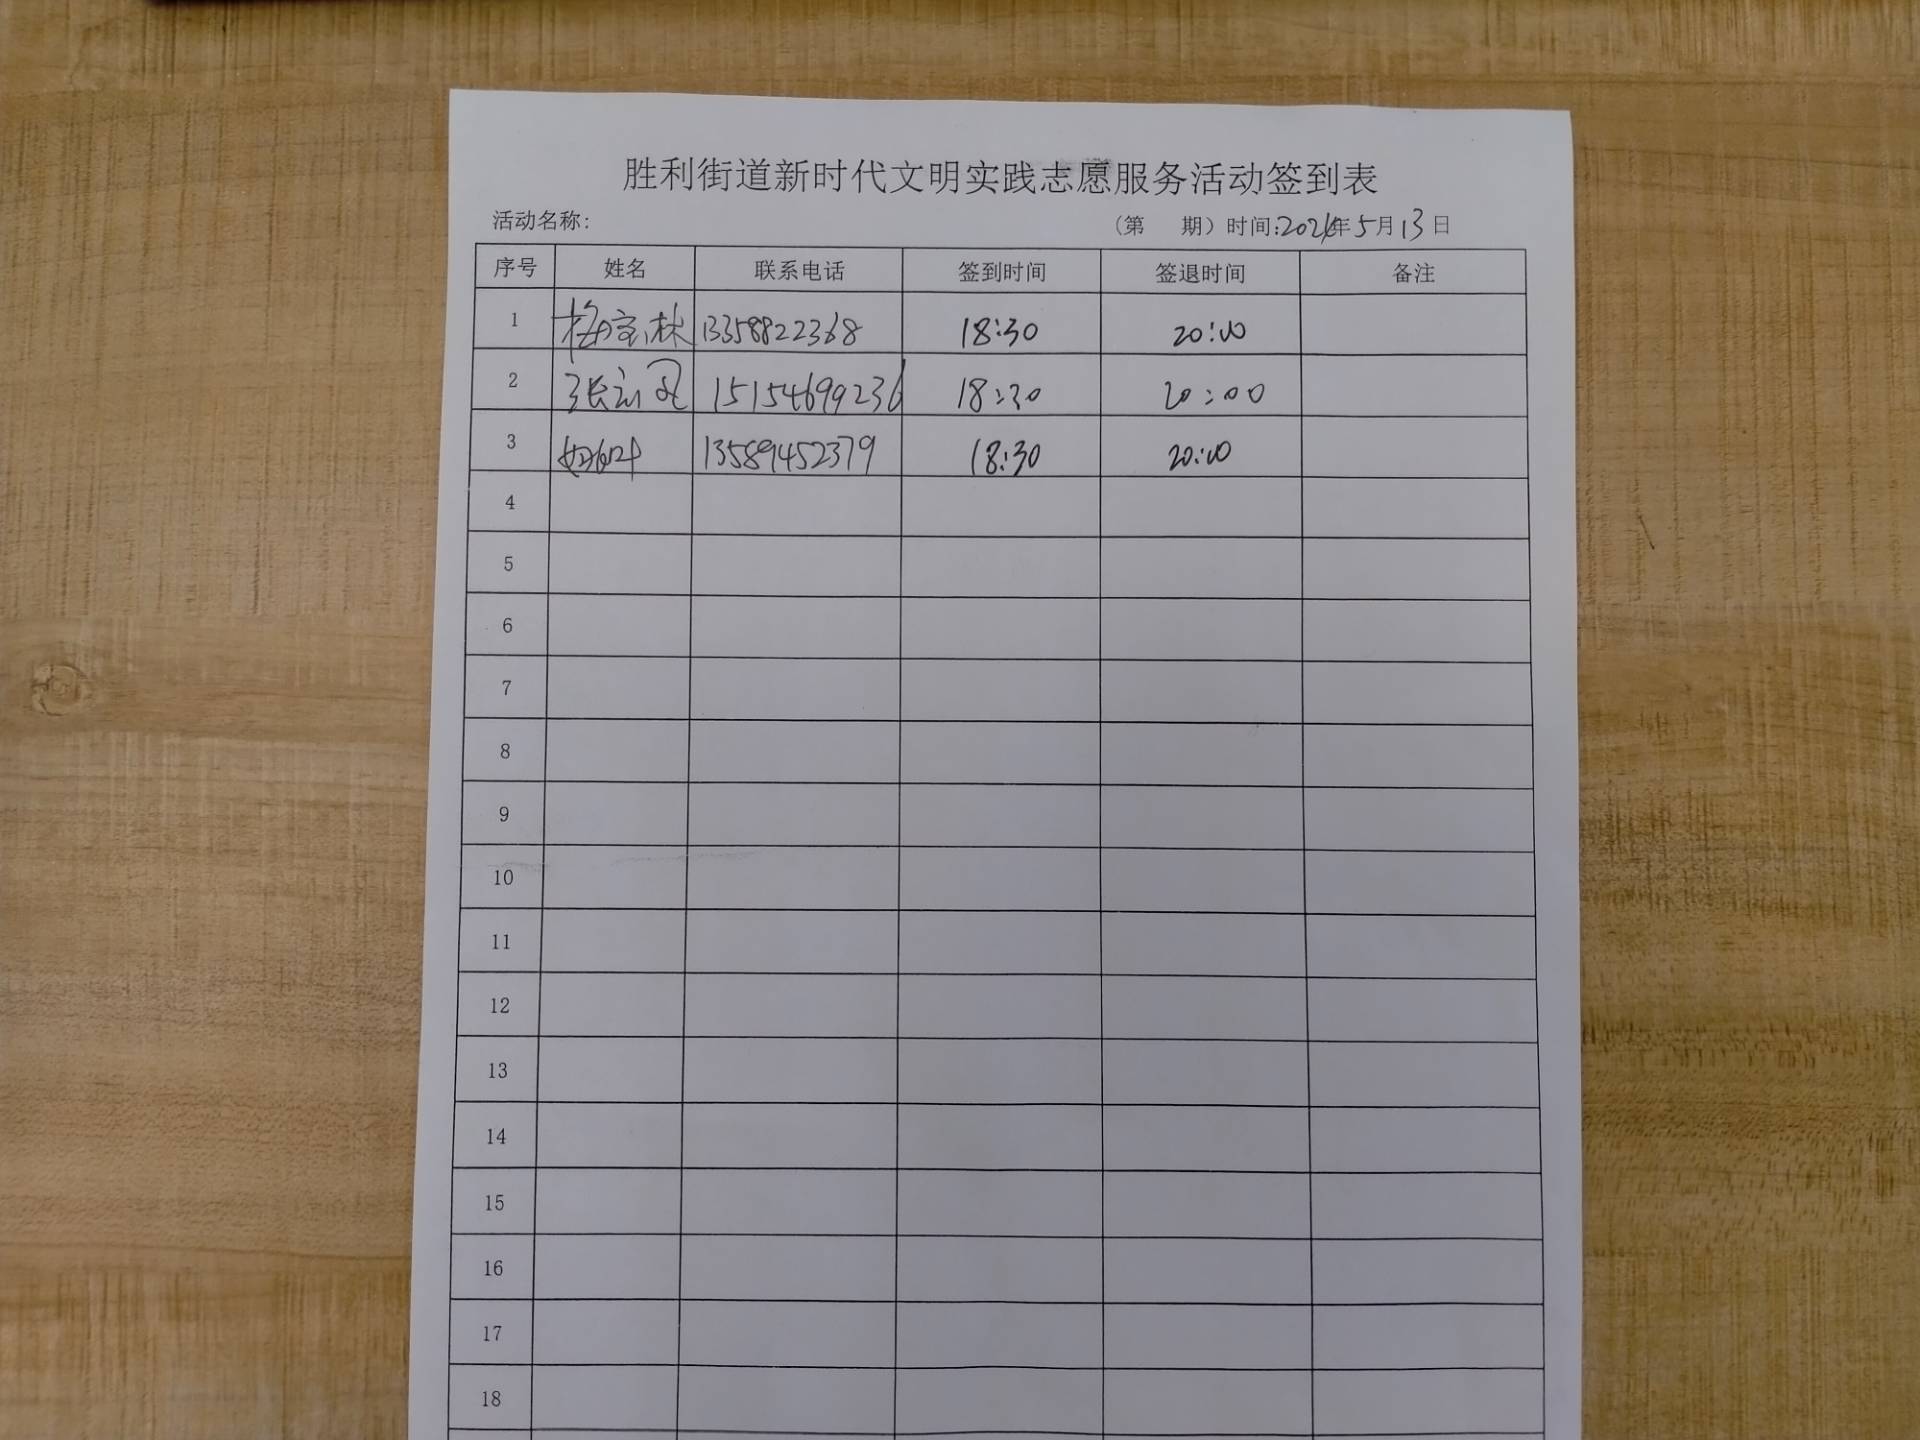 胜利街道新时代文明实践志愿服务活动签到表
活动名称: (第 期) 时间:2024年5月13日
序号 姓名 联系电话 签到时间 签退时间 备注
1 梅宝林 13358822368 18:30 20:00
2 张 15154699236 18:30 20:00
3 13589452379 18:30 20:00
4
5
6
7
8
9
10
11
12
13
14
15
16
17
18